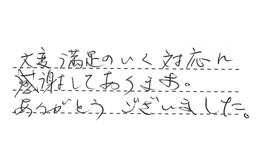 大変満足のいく対応に
感謝しております。
ありがとうございました。